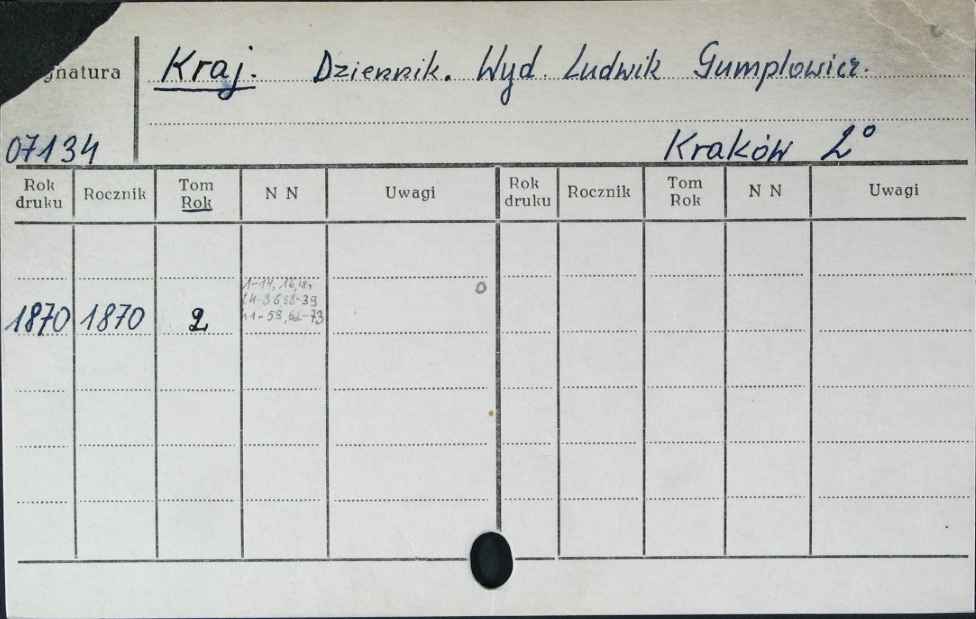 gnatura Kraj. Dziennik. Wyd. Ludwik Gumplowicz.
07134 Kraków 2°
Rok druku Rocznik Tom Rok N N Uwagi Rok druku Rocznik Tom Rok N N Uwagi
1-14, 16,
-36 38-39
-59, -73
1870 1870 2